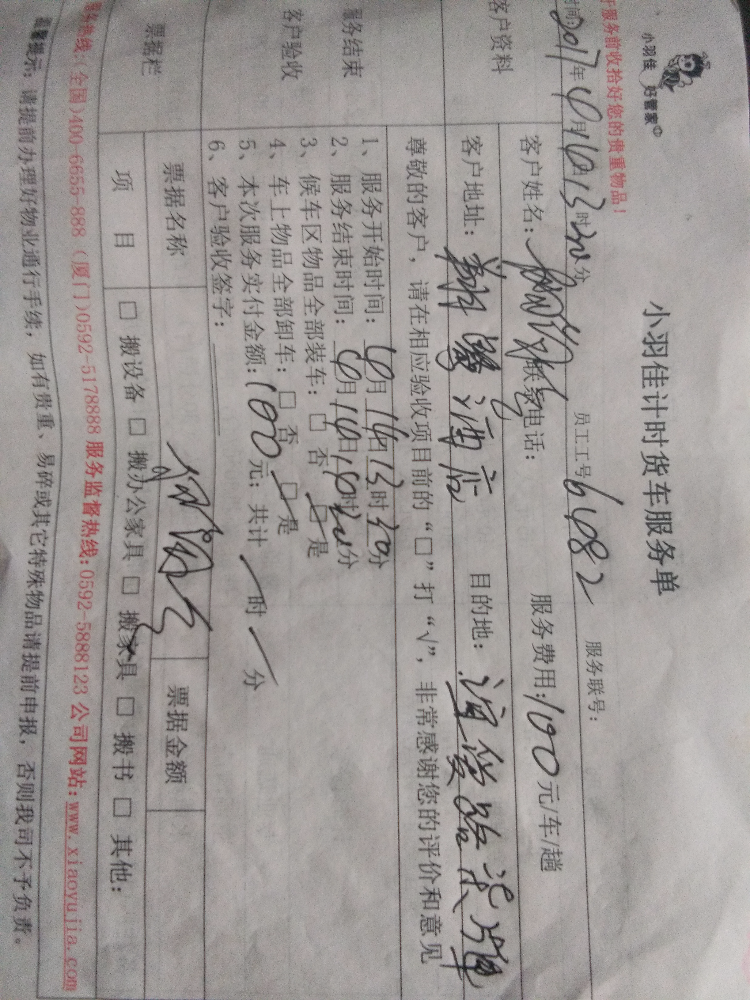 小羽佳 好管家
小羽佳计时货车服务单
服务前收拾好您的贵重物品！
员工工号 6482 服务联号：
时间：2017年6月16日13时30分
客户资料
客户姓名： 联系电话： 服务费用：100元/车/趟
客户地址： 酒店 目的地：
尊敬的客户，请在相应验收项目前的“□”打“√”，非常感谢您的评价和意见
服务结束
客户验收
1、服务开始时间：6月16日13时30分
2、服务结束时间：6月16日 时 分
3、候车区物品全部装车：□ 否 □ 是
4、车上物品全部卸车：□ 否 □ 是
5、本次服务实付金额：100元；共计 时 分
6、客户验收签字：
票据栏
票据名称 票据金额
项 目 □ 搬设备 □ 搬办公家具 □ 搬家具 □ 搬书 □ 其他：
服务热线：(全国)400-6655-888 (厦门)0592-5178888 服务监督热线：0592-5888123 公司网站：www.xiaoyujia.com
温馨提示：请提前办理好物业通行手续，如有贵重、易碎或其它特殊物品请提前申报，否则我司不予负责。